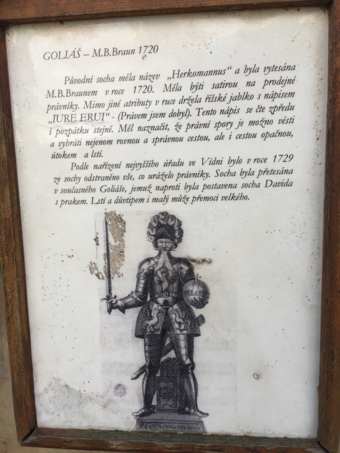 GOLIÁŠ – M.B.Braun 1720
Původní socha měla název „Herkomannus" a byla vytesána
M.B.Braunem v roce 1720. Měla býti satirou na prodejné
právníky. Mimo jiné atributy v ruce držela říšské jablko s nápisem
„JURE ERUI" - (Právem jsem dobyl). Tento nápis se čte zpředu
i pozpátku stejně. Měl naznačit, že právní spory je možno vésti
a vybrati nejenom rovnou a správnou cestou, ale i cestou opačnou,
útokem a lstí.
Podle nařízení nejvyššího úřadu ve Vídni bylo v roce 1729
ze sochy odstraněno vše, co uráželo právníky. Socha byla přetesána
v současného Goliáše, jemuž naproti byla postavena socha Davida
s prakem. Lstí a důvtipem i malý může přemoci velkého.